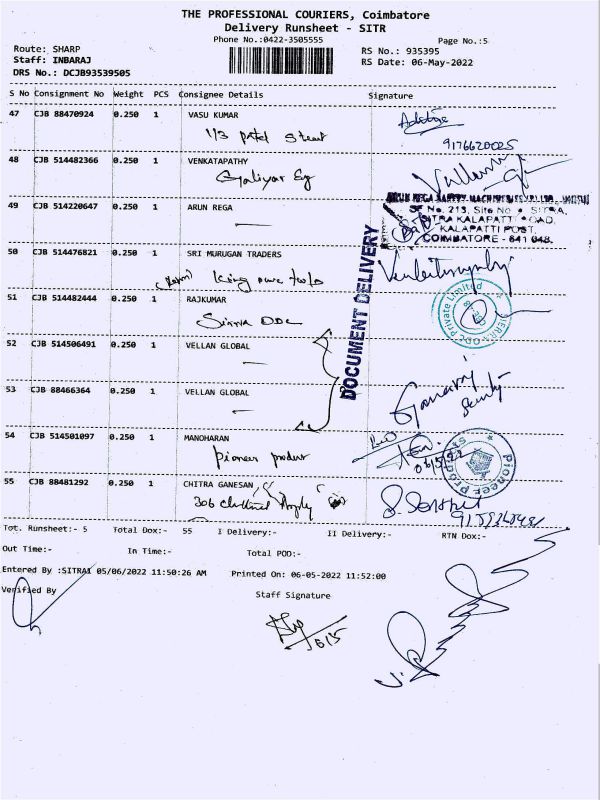 THE PROFESSIONAL COURIERS, Coimbatore
Delivery Runsheet - SITR
Phone No.:0422-3505555
Page No.:5
Route: SHARP
RS No.: 935395
Staff: INBARAJ
RS Date: 06-May-2022
DRS No.: DCJB93539505
S No Consignment No Weight PCS Consignee Details Signature
47 CJB 88470924 0.250 1 VASU KUMAR
1/3 patel street
9176620025
48 CJB 514482366 0.250 1 VENKATAPATHY
49 CJB 514220647 0.250 1 ARUN REGA
SF No. 213, Site No
SITRA KALAPATTI ROAD,
KALAPATTI POST,
COIMBATORE - 641 048.
50 CJB 514476821 0.250 1 SRI MURUGAN TRADERS
DOCUMENT DELIVERY
51 CJB 514482444 0.250 1 RAJKUMAR
Private Limited
52 CJB 514506491 0.250 1 VELLAN GLOBAL
53 CJB 88466364 0.250 1 VELLAN GLOBAL
54 CJB 514501097 0.250 1 MANOHARAN
Pioneer product
Pioneer Products
55 CJB 88481292 0.250 1 CHITRA GANESAN
306
Tot. Runsheet:- 5 Total Dox:- 55 I Delivery:- II Delivery:- RTN Dox:-
Out Time:- In Time:- Total POD:-
Entered By :SITRA1 05/06/2022 11:50:26 AM Printed On: 06-05-2022 11:52:00
Verified By Staff Signature